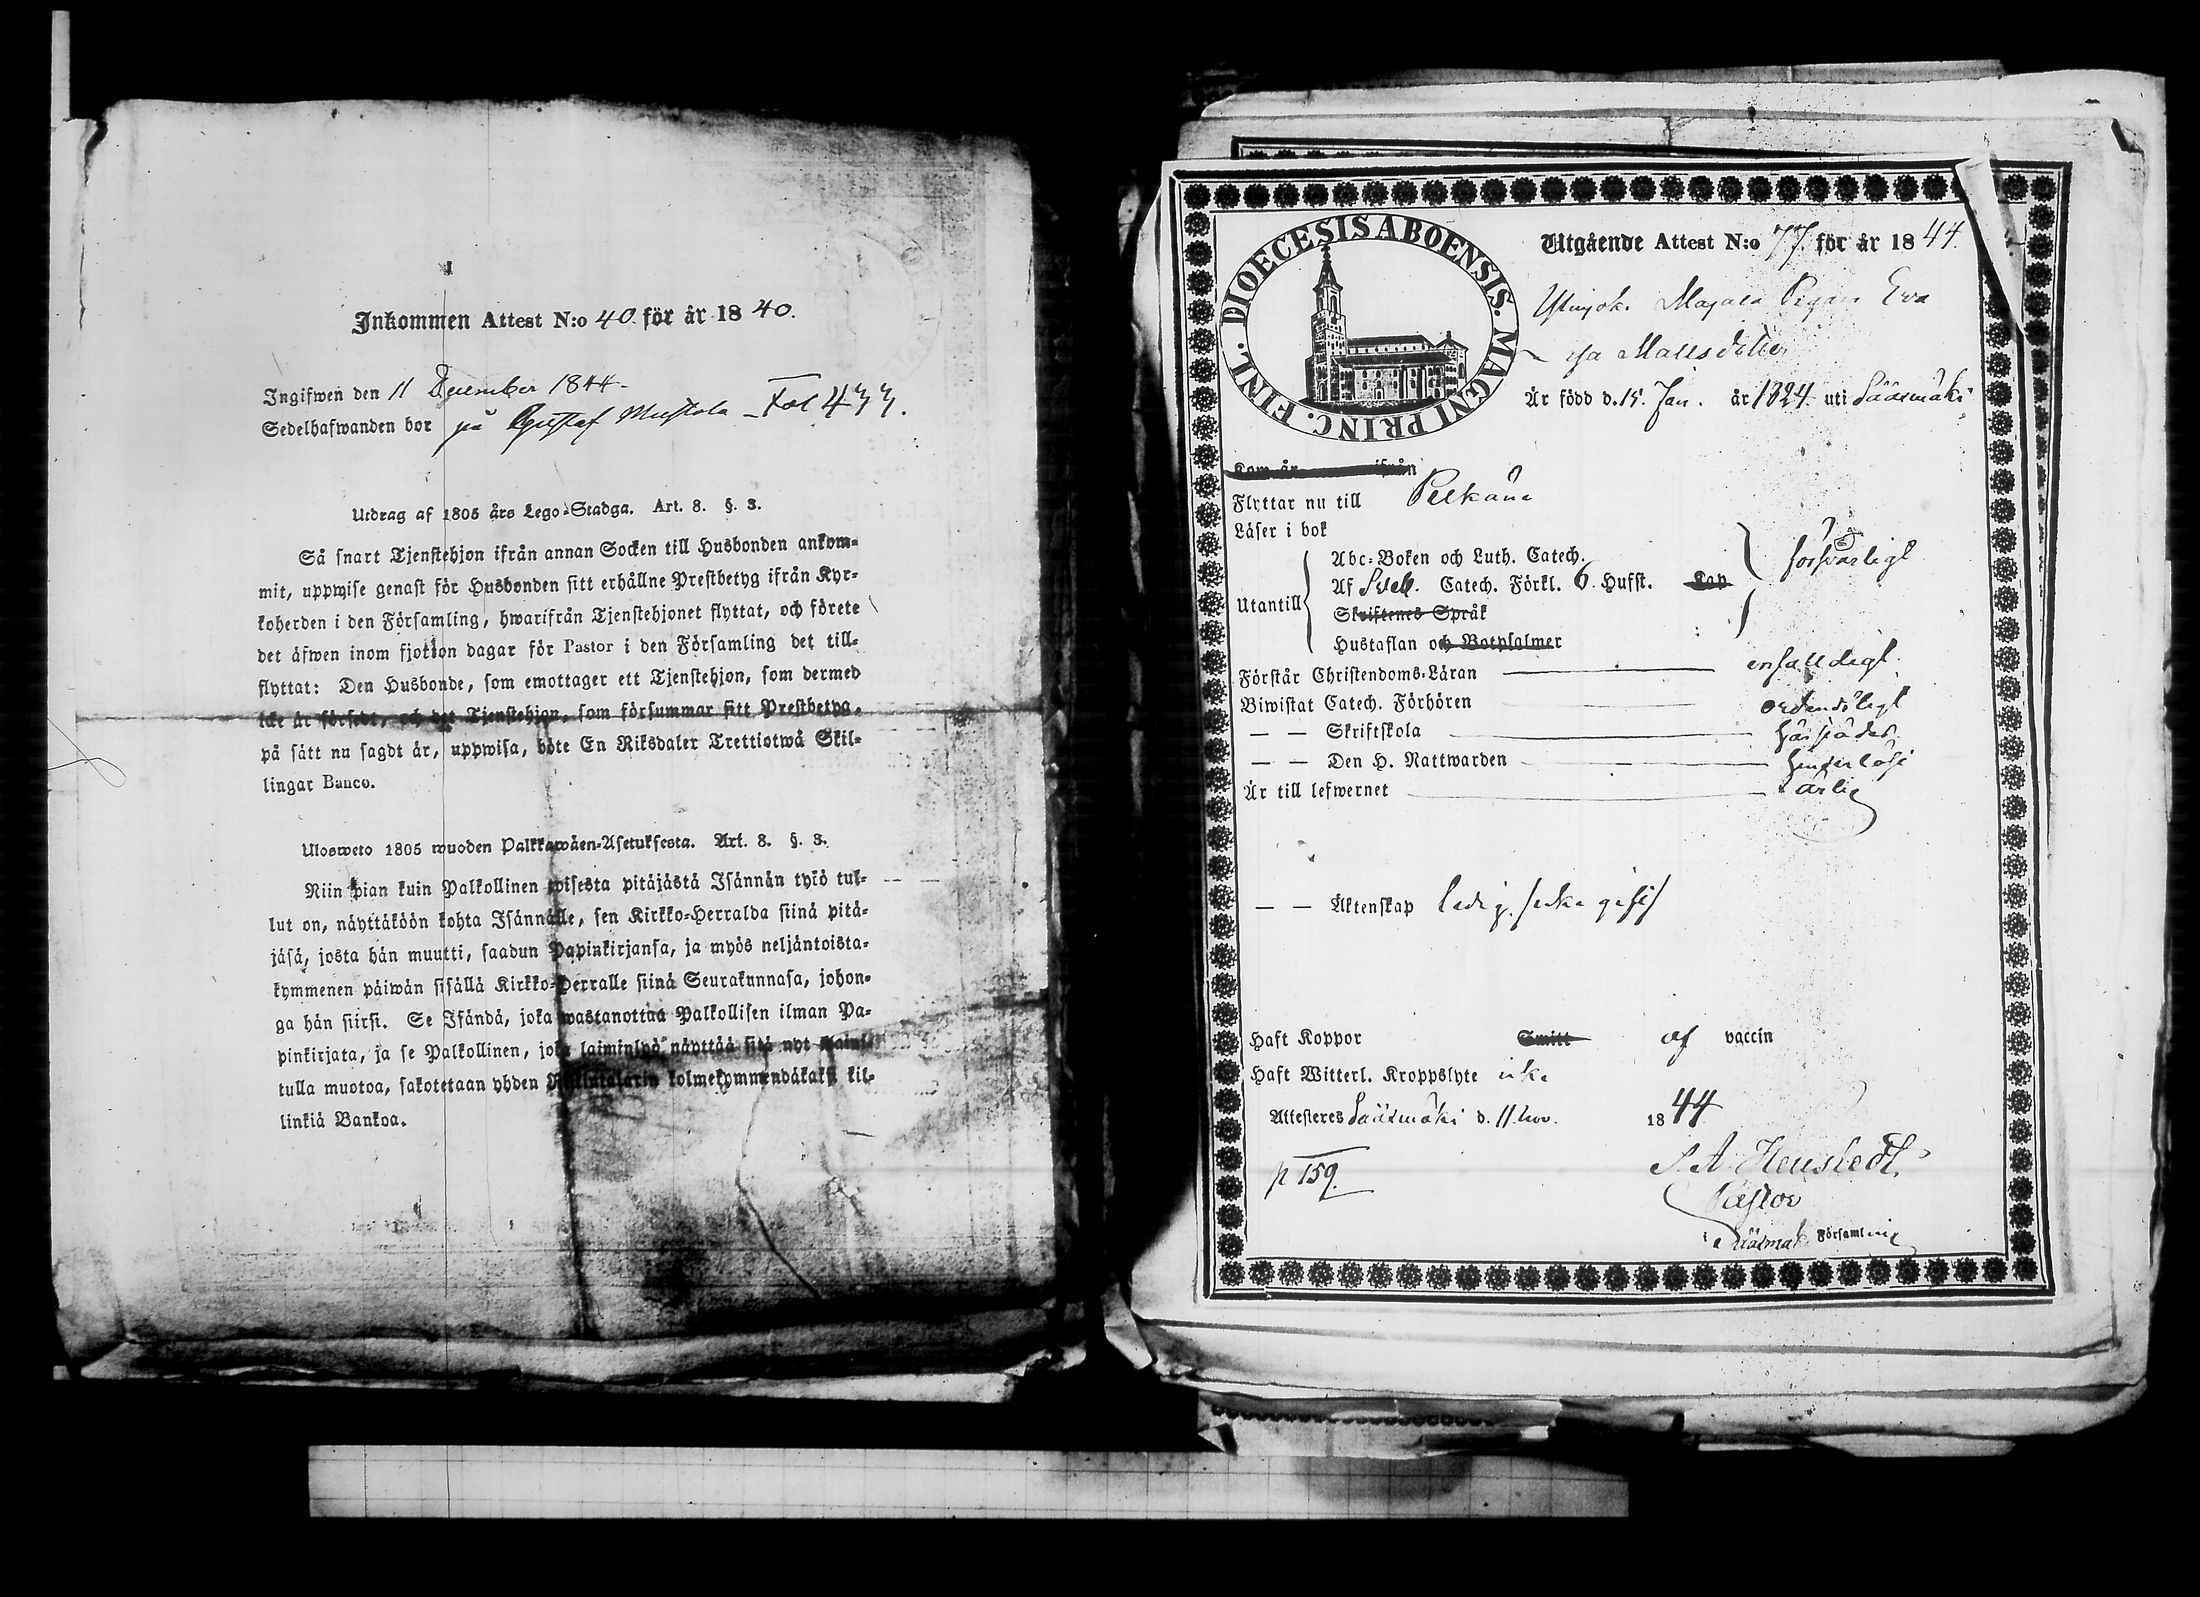 Inkommen Attest N:o 40. för år 1840.
Ingifwen den 11 December 1844.
Sedelhafwanden bor på Gustaf Mustola – Fol 433.
Utdrag af 1805 års Lego-Stadga. Art. 8. §. 3.
Så snart Tjenstehjon ifrån annan Socken till Husbonden ankom-
mit, uppwise genast för Husbonden sitt erhållne Prestbetyg ifrån Kyr-
koherden i den Församling, hwarifrån Tjenstehjonet flyttat, och förete
det äfwen inom fjorton dagar för Pastor i den Församling det till-
flyttat: Den Husbonde, som emottager ett Tjenstehjon, som dermed
icke är försedt, och det Tjenstehjon, som försummar sitt Prestbetyg,
på sätt nu sagdt är, uppwisa, böte En Riksdaler Trettiotwå Skil-
lingar Banco.
Ulosweto 1805 wuoden Palkkawäen-Asetuksesta. Art. 8. §. 3.
Niin pian kuin Palkollinen toisesta pitäjästä Isännän tykö tul-
lut on, näyttäköön kohta Isännälle, sen Kirkko-Herralda siinä pitä-
jäsä, josta hän muutti, saadun Papinkirjansa, ja myös neljäntoista-
kymmenen päiwän sisällä Kirkko-Herralle siinä Seurakunnasa, johon-
ga hän siirsi. Se Isändä, joka wastanottaa Palkollisen ilman Pa-
pinkirjata, ja se Palkollinen, joka laiminlyö näyttää sitä nyt mainit-
tulla muotoa, sakotetaan yhden Riksitalarin kolmekymmendäkaksi kil-
linkiä Bankoa.
DIOECESIS ABOENSIS. MAGNI PRINC. FINL.
Utgående Attest N:o 77. för år 1844.
Pigan Eva
Mattsdotter
Är född d. 15. Jan. år 1824. uti Sääsmäki
Kom år ifrån
Flyttar nu till Pelkäne
Läser i bok
Utantill
Abc-Boken och Luth. Catech.
Af Sveb. Catech. Förkl. 6. Hufst. Kap
Skriftenes Språk
Hustaflan och Botpsalmer
försvarligt
Förstår Christendoms-Läran enfalldigt
Biwistat Catech. Förhören ordentligt
— — Skriftskola
— — Den H. Nattwarden
Är till lefwernet ärlig
— — Äktenskap ledig,
Haft Koppor Smitt af vaccin
Haft Witterl. Kroppslyte icke
Attesteres Sääsmäki d. 11. Nov. 1844
p 159.
Pastor
i Sääsmäki Församling